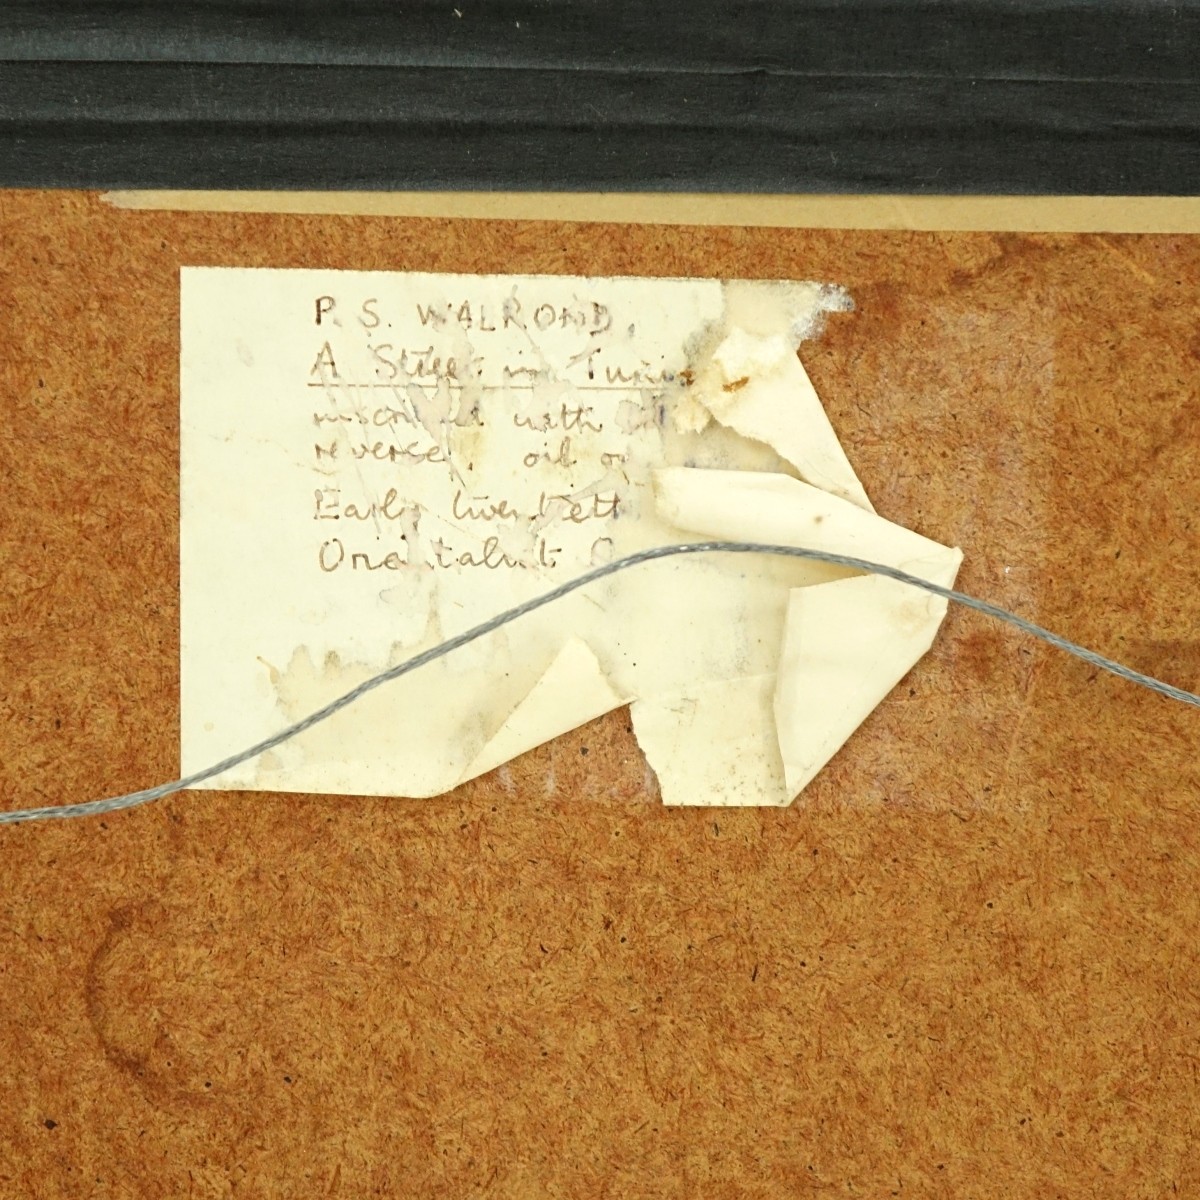 P. S. WALROND,
A Street in Tunis
inscribed with
reverse, oil on
Early twentieth
Orientalist